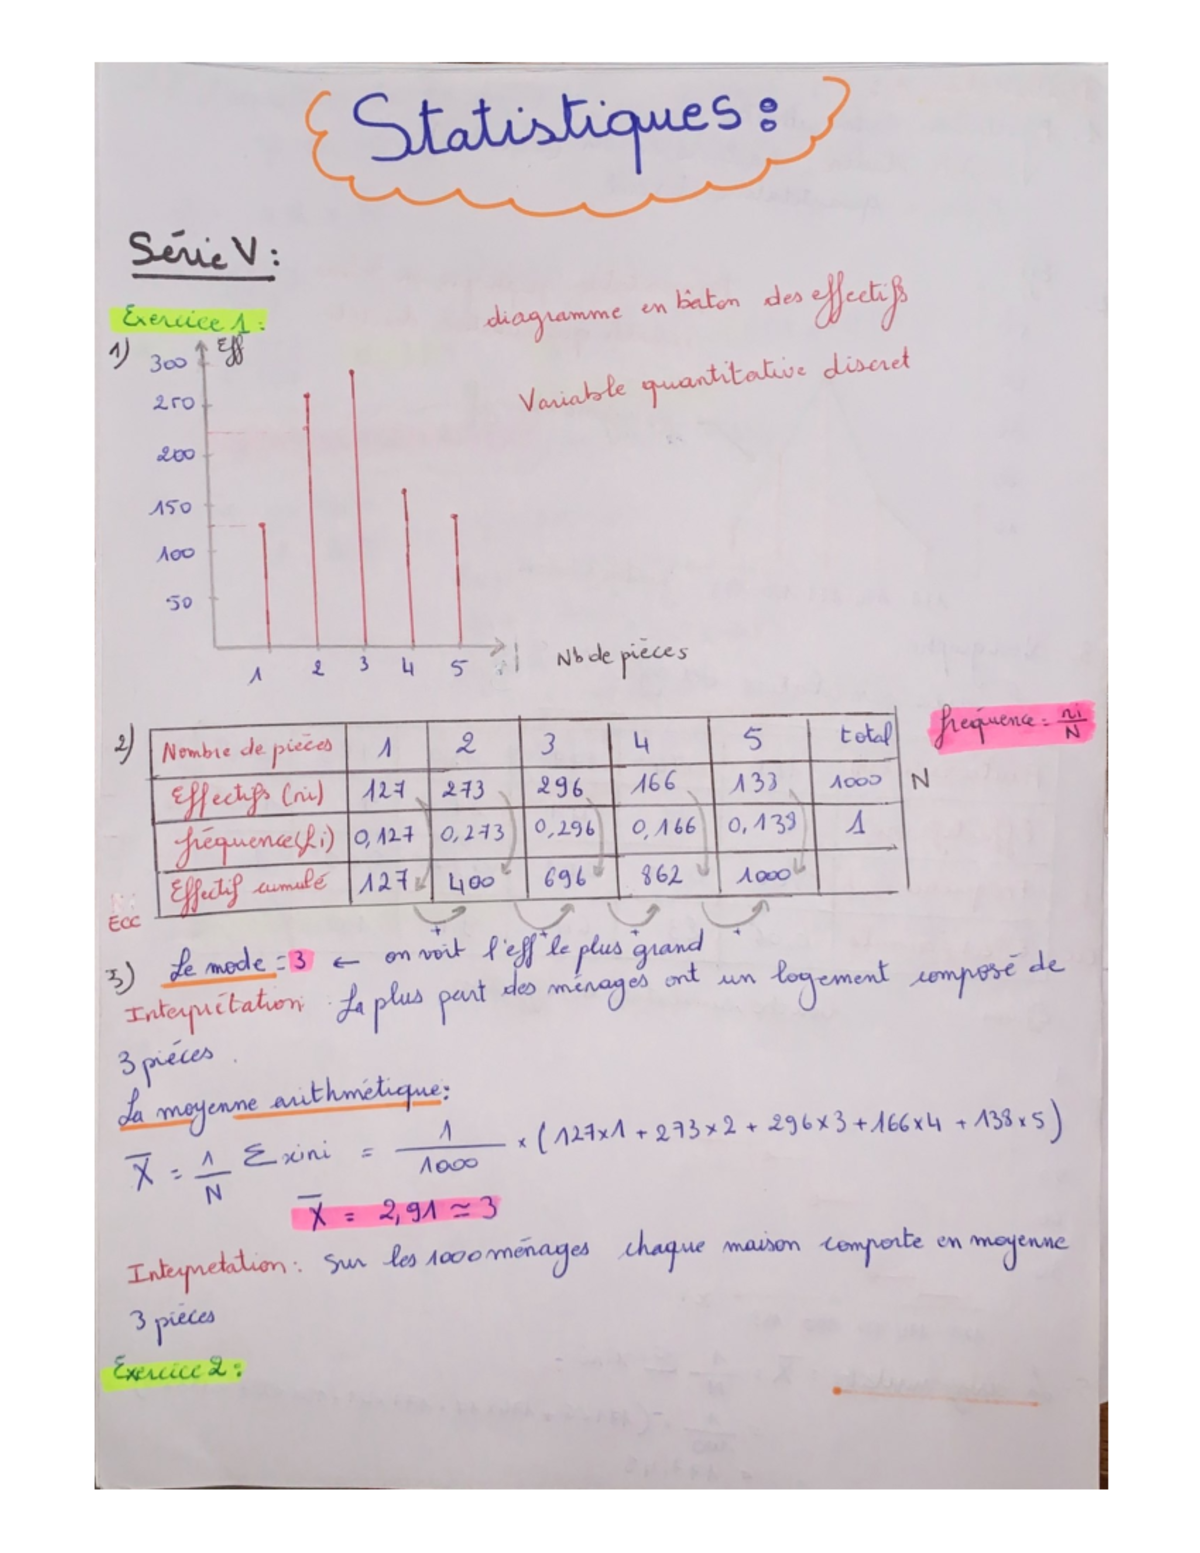 Statistiques :
Série V :
Exercice 1 :
diagramme en bâton des effectifs
Variable quantitative discret
1)
Eff
300
250
200
150
100
50
1 2 3 4 5
Nb de pièces
fréquence = ni/N
2)
Nombre de pièces 1 2 3 4 5 total
Effectifs (ni) 127 273 296 166 138 1000 N
fréquence (fi) 0,127 0,273 0,296 0,166 0,138 1
Effectif cumulé 127 400 696 862 1000
ECC
+ + + +
3) Le mode = 3 ← on voit l'eff le plus grand
Interprétation : La plus part des ménages ont un logement composé de
3 pièces .
La moyenne arithmétique :
X̄ = 1/N Σ xini = 1/1000 × ( 127×1 + 273×2 + 296×3 + 166×4 + 138×5 )
X̄ = 2,91 ≃ 3
Interpretation : Sur les 1000 ménages chaque maison comporte en moyenne
3 pièces
Exercice 2 :